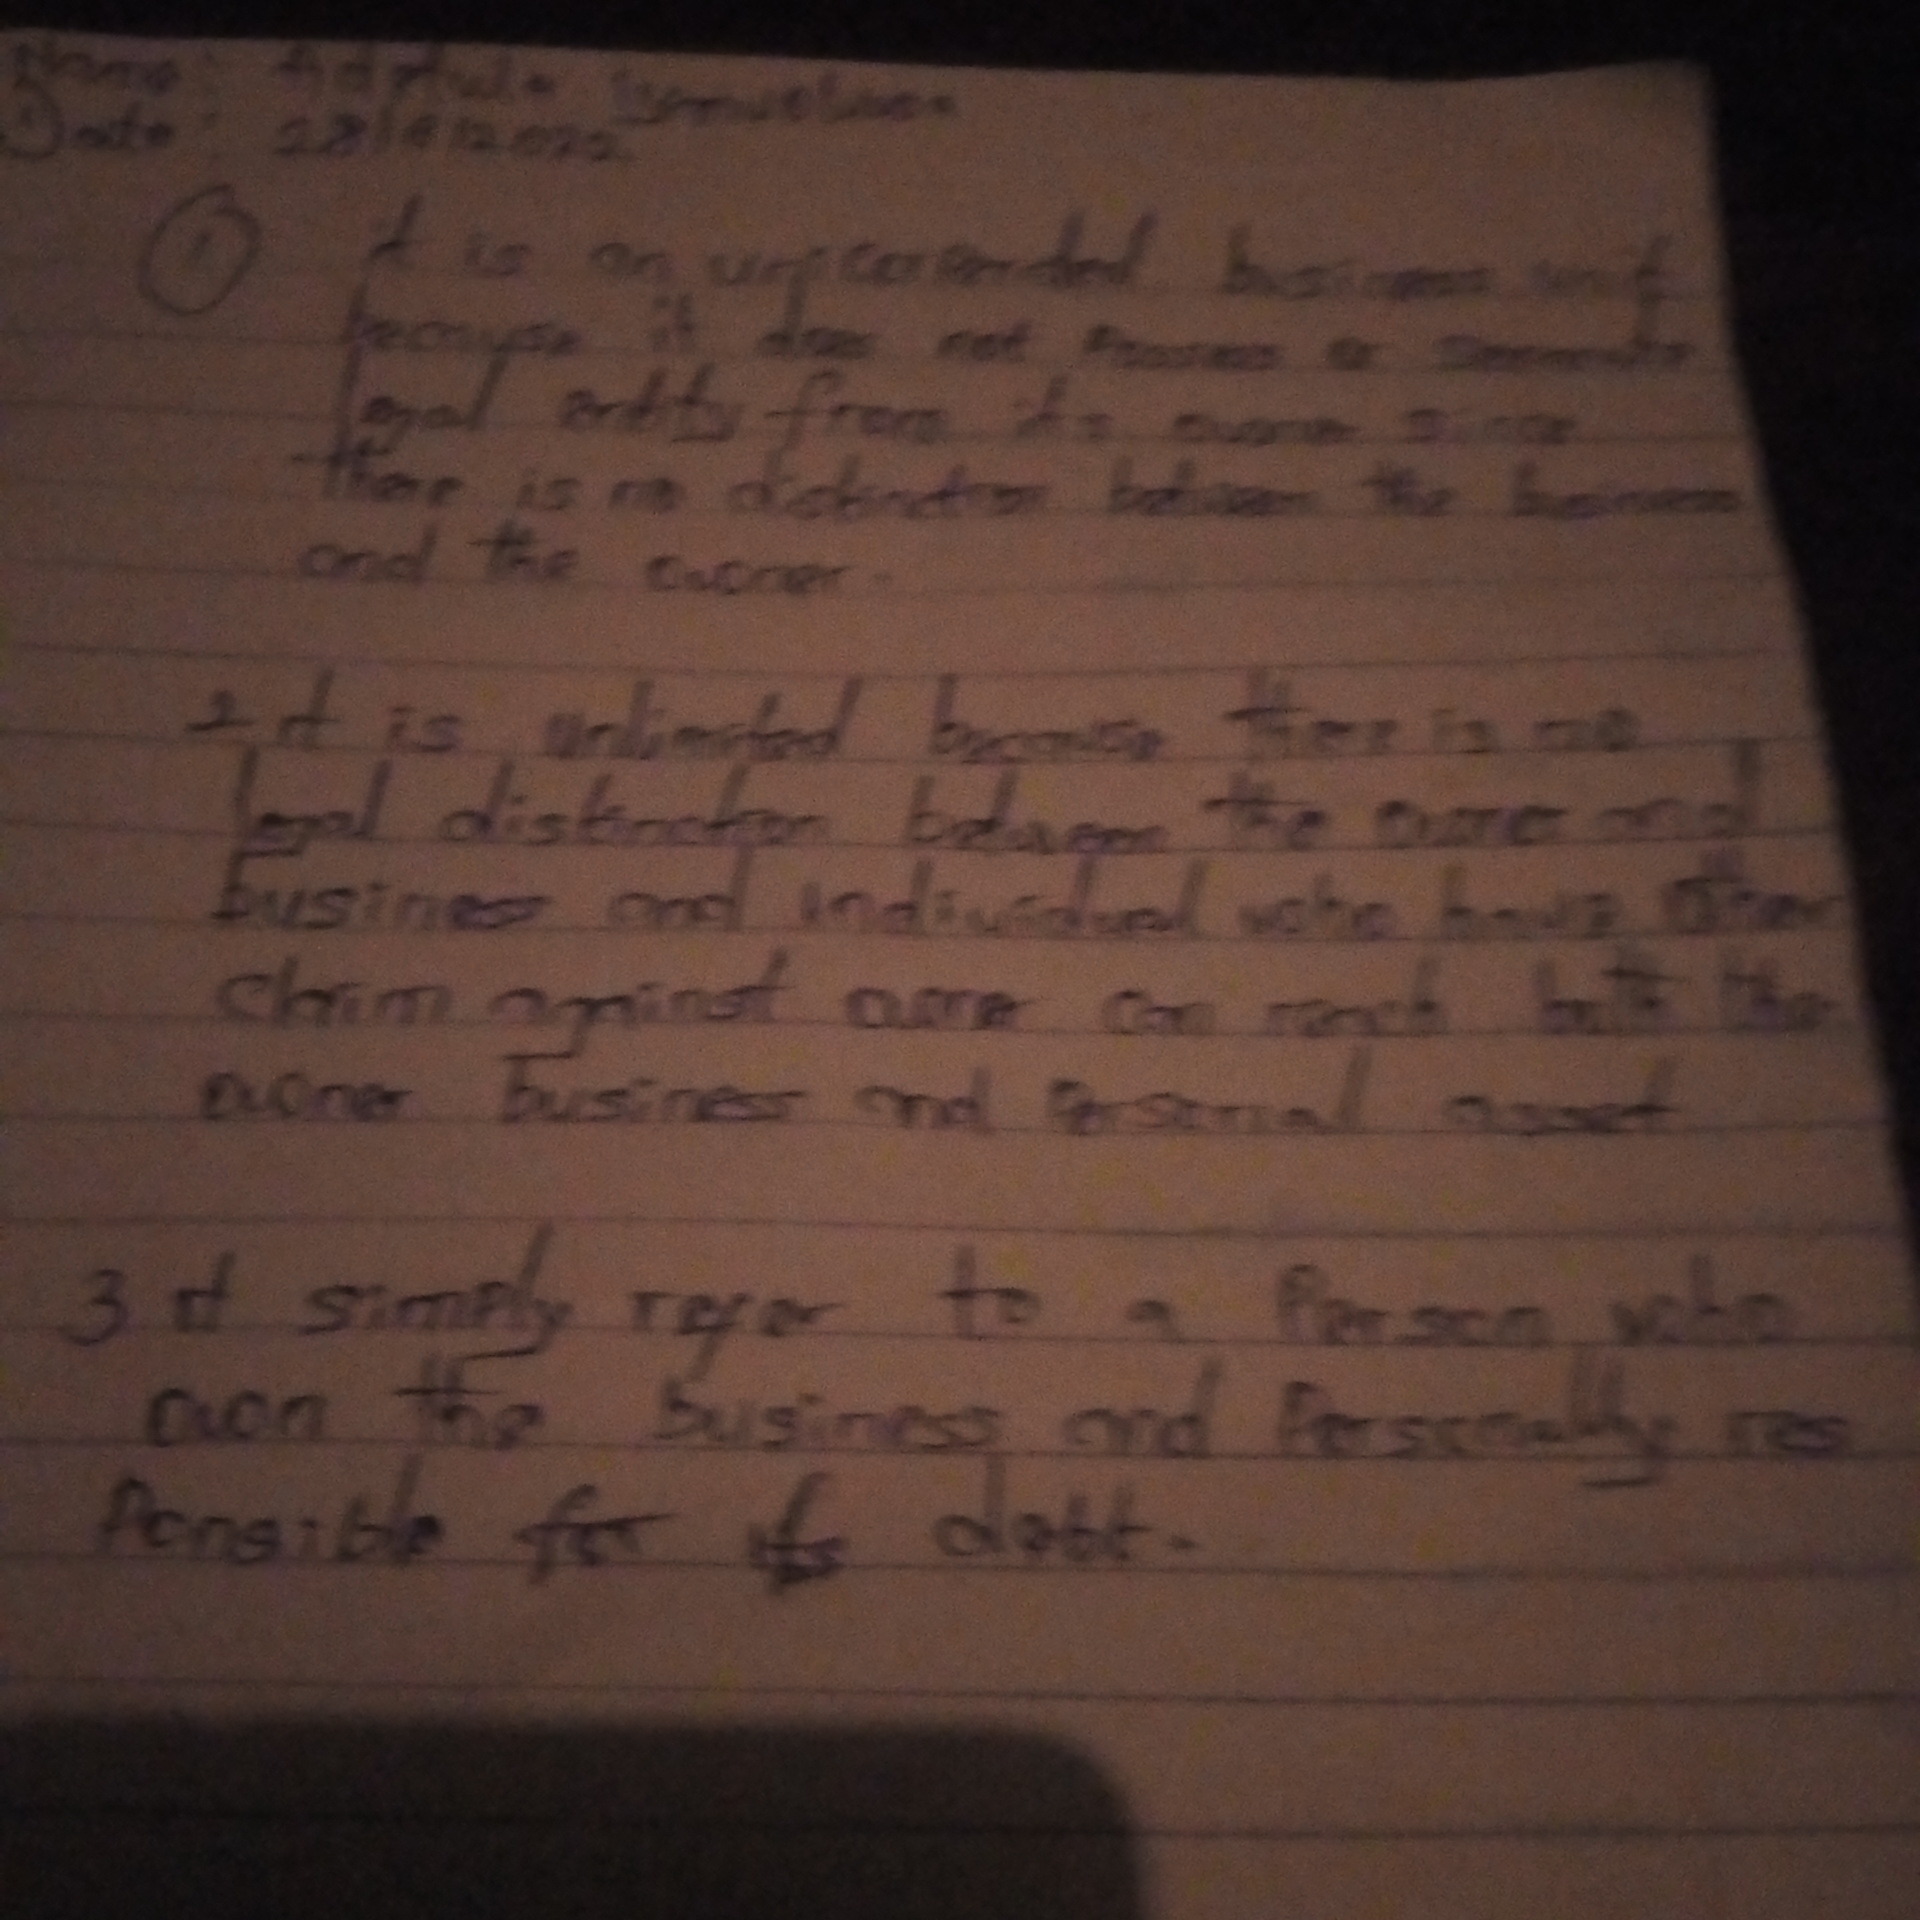 Name:
Date: 28/ /2022
① It is an business unit
because it does not Possess a Separate
legal entity from its owner since
there is no distinction between the business
and the owner.
2 It is unlimited because there is no
legal distinction between the owner and
business and individual who have other
claim against owner can reach both the
owner business and Personal asset
3 It simply refer to a Person who
own the business and Personally res
Ponsible for its debt.